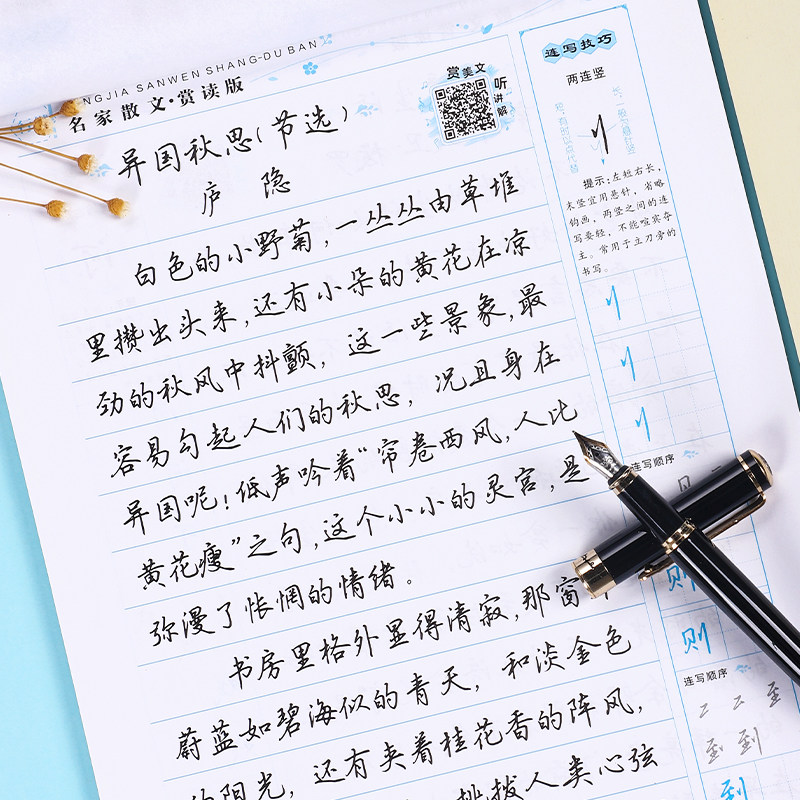 NGJIA SANWEN SHANG-DU BAN
名家散文·赏读版
赏美文
听讲解
异国秋思(节选)
庐 隐
白色的小野菊,一丛丛由草堆
里攒出头来,还有小朵的黄花在凉
劲的秋风中抖颤,这一些景象,最
容易勾起人们的秋思,况且身在
异国呢!低声吟着“帘卷西风,人比
黄花瘦”之句,这个小小的灵宫,是
弥漫了怅惘的情绪。
书房里格外显得清寂,那窗
蔚蓝如碧海似的青天,和淡金色
的阳光,还有夹着桂花香的阵风,
挑拨人类心弦
连写技巧
两连竖
提示:左短右长,
末竖宜用悬针,省略
钩画,两竖之间的连
写要轻,不能喧宾夺
主。常用于立刀旁的
书写。
连写顺序
则
则
连写顺序
至
至 到
到